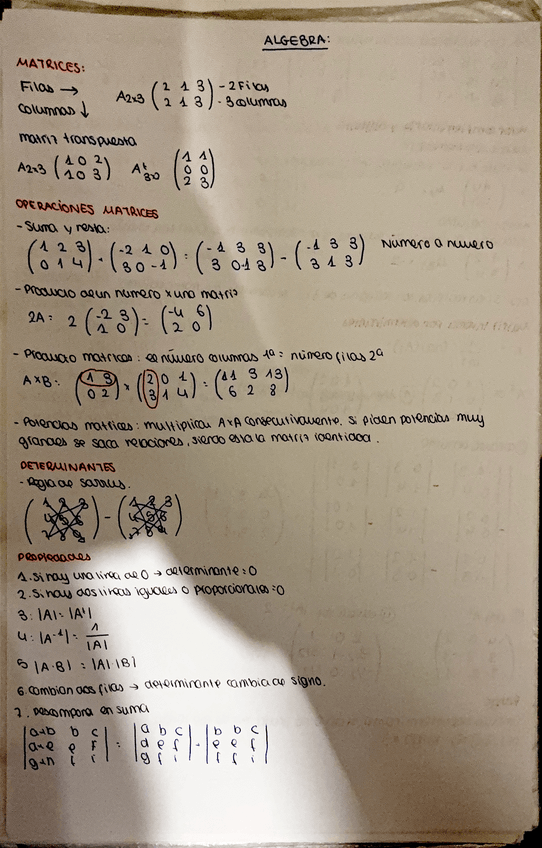 ALGEBRA:
MATRICES:
Filas →
columnas ↓
A2x3 ( 2 1 3 ) - 2 Filas
( 2 1 3 ) - 3 columnas
matriz transpuesta
A2x3 ( 1 0 2 ) Aᵗ ( 1 1 )
( 1 0 3 ) ( 0 0 )
( 2 3 )
OPERACIONES MATRICES
- Suma y resta:
( 1 2 3 ) + ( -2 1 0 ) = ( -1 3 3 ) = ( -1 3 3 ) Número a número
( 0 1 4 ) ( 3 0 -1 ) ( 3 0+1 3 ) ( 3 1 3 )
- Producto de un número x una matriz
2A = 2 ( -2 3 ) = ( -4 6 )
( 1 0 ) ( 2 0 )
- Producto matrices: número columnas 1ª = número filas 2ª
A×B = ( 1 3 ) × ( 2 0 1 ) = ( 11 3 13 )
( 0 2 ) ( 3 1 4 ) ( 6 2 8 )
- Potencias matrices: multiplicar A×A consecutivamente. Si piden potencias muy
grandes se saca relaciones, siendo esta la matriz identidad.
DETERMINANTES
- Regla de Sarrus.
( 1 2 3 ) - ( 1 2 3 )
( 4 5 6 ) ( 4 5 6 )
( 7 8 9 ) ( 7 8 9 )
PROPIEDADES
1. Si hay una línea de 0 → determinante = 0
2. Si hay dos líneas iguales o proporcionales = 0
3: |A| = |Aᵗ|
4: |A⁻¹| = 1/|A|
5 |A·B| = |A|·|B|
6. cambian dos filas → determinante cambia de signo.
7. Descompora en suma
| a+b b c | = | a b c | + | b b c |
| d+e e f | | d e f | | e e f |
| g+h i i | | g f i | | f f i |